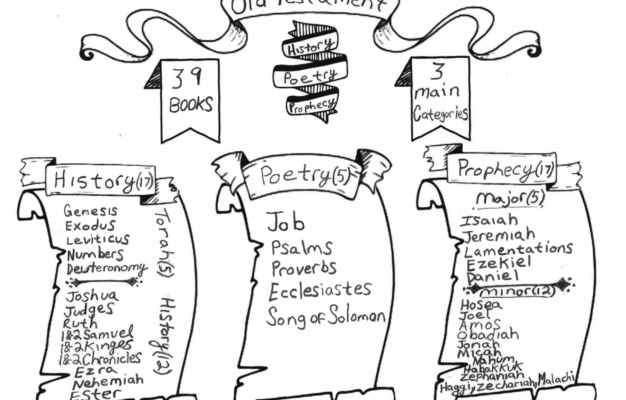 Old Testament
History
Poetry
Prophecy
39
BOOKS
3
main
Categories
History(17)
Genesis
Exodus
Leviticus
Numbers
Deuteronomy
Torah(5)
Joshua
Judges
Ruth
1&2 Samuel
1&2 Kinges
1&2 Chronicles
Ezra
Nehemiah
Ester
History(12)
Poetry(5)
Job
Psalms
Proverbs
Ecclesiastes
Song of Soloman
Prophecy(17)
major(5)
Isaiah
Jeremiah
Lamentations
Ezekiel
Daniel
minor(12)
Hosea
Joel
Amos
Obadiah
Jonah
Micah
Nahum,
Habakkuk
Zephaniah
Haggi, Zechariah, Malachi